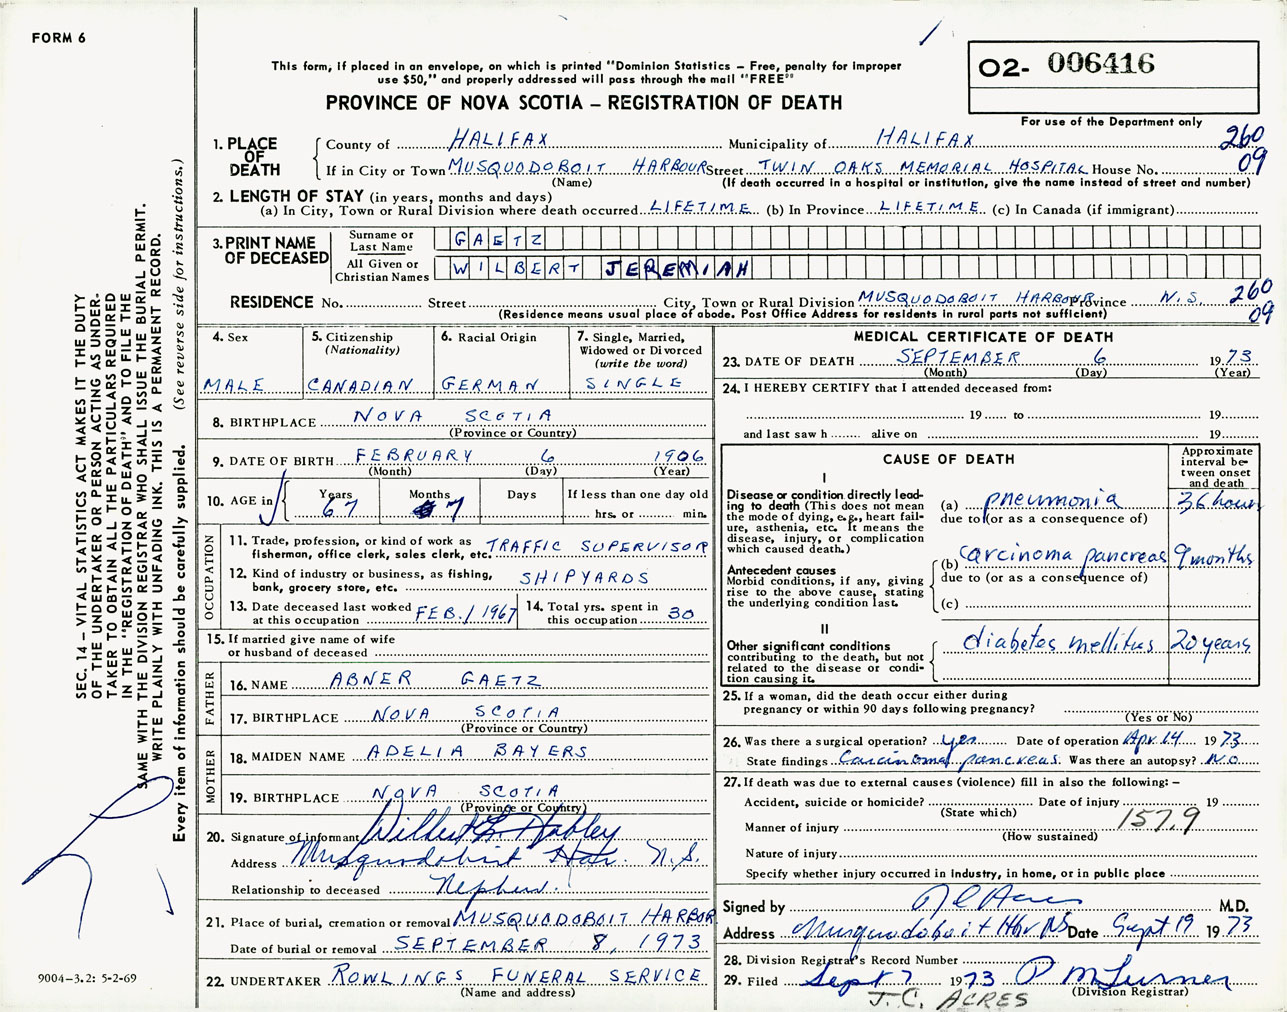 FORM 6
This form, if placed in an envelope, on which is printed "Dominion Statistics – Free, penalty for improper
use $50," and properly addressed will pass through the mail "FREE"
PROVINCE OF NOVA SCOTIA – REGISTRATION OF DEATH
O2- 006416
For use of the Department only
260
09
1. PLACE OF DEATH
County of HALIFAX Municipality of HALIFAX
If in City or Town MUSQUODOBOIT HARBOUR Street TWIN OAKS MEMORIAL HOSPITAL House No.
(Name) (If death occurred in a hospital or institution, give the name instead of street and number)
2. LENGTH OF STAY (in years, months and days)
(a) In City, Town or Rural Division where death occurred LIFETIME (b) In Province LIFETIME (c) In Canada (if immigrant)
3. PRINT NAME OF DECEASED
Surname or Last Name GAETZ
All Given or Christian Names WILBERT JEREMIAH
RESIDENCE No. Street City, Town or Rural Division MUSQUODOBOIT HARBOUR Province N.S. 260
(Residence means usual place of abode. Post Office Address for residents in rural parts not sufficient) 09
4. Sex MALE
5. Citizenship (Nationality) CANADIAN
6. Racial Origin GERMAN
7. Single, Married, Widowed or Divorced (write the word) SINGLE
8. BIRTHPLACE NOVA SCOTIA
(Province or Country)
9. DATE OF BIRTH FEBRUARY 6 1906
(Month) (Day) (Year)
10. AGE in Years 67 Months 7 Days If less than one day old
hrs. or min.
OCCUPATION
11. Trade, profession, or kind of work as
fisherman, office clerk, sales clerk, etc. TRAFFIC SUPERVISOR
12. Kind of industry or business, as fishing,
bank, grocery store, etc. SHIPYARDS
13. Date deceased last worked
at this occupation FEB./1967
14. Total yrs. spent in
this occupation 30
15. If married give name of wife
or husband of deceased
FATHER
16. NAME ABNER GAETZ
17. BIRTHPLACE NOVA SCOTIA
(Province or Country)
MOTHER
18. MAIDEN NAME ADELIA BAYERS
19. BIRTHPLACE NOVA SCOTIA
(Province or Country)
20. Signature of informant Wilbert
Address Musquodoboit Har. N.S.
Relationship to deceased Nephew.
21. Place of burial, cremation or removal MUSQUODOBOIT HARBOR
Date of burial or removal SEPTEMBER 8, 1973
22. UNDERTAKER ROWLINGS FUNERAL SERVICE
(Name and address)
MEDICAL CERTIFICATE OF DEATH
23. DATE OF DEATH SEPTEMBER 6 1973
(Month) (Day) (Year)
24. I HEREBY CERTIFY that I attended deceased from:
19 to 19
and last saw h alive on 19
CAUSE OF DEATH
Approximate interval between onset and death
I
Disease or condition directly lead-
ing to death (This does not mean
the mode of dying, e.g., heart fail-
ure, asthenia, etc. It means the
disease, injury, or complication
which caused death.)
(a) pneumonia 36 hours
due to (or as a consequence of)
Antecedent causes
Morbid conditions, if any, giving
rise to the above cause, stating
the underlying condition last.
(b) carcinoma pancreas 9 months
due to (or as a consequence of)
(c)
II
Other significant conditions
contributing to the death, but not
related to the disease or condi-
tion causing it.
diabetes mellitus 20 years
25. If a woman, did the death occur either during
pregnancy or within 90 days following pregnancy?
(Yes or No)
26. Was there a surgical operation? yes Date of operation Apr. 14 1973
State findings Carcinoma pancreas. Was there an autopsy? No
27. If death was due to external causes (violence) fill in also the following: –
Accident, suicide or homicide? Date of injury 19
(State which)
Manner of injury 157.9
(How sustained)
Nature of injury
Specify whether injury occurred in industry, in home, or in public place
Signed by M.D.
Address Musquodoboit Hbr NS Date Sept 19 1973
28. Division Registrar's Record Number
29. Filed Sept 7 1973 P M Turner
(Division Registrar)
J.C. ACRES
SEC. 14 – VITAL STATISTICS ACT MAKES IT THE DUTY
OF THE UNDERTAKER OR PERSON ACTING AS UNDER-
TAKER TO OBTAIN ALL THE PARTICULARS REQUIRED
IN THE "REGISTRATION OF DEATH" AND TO FILE THE
SAME WITH THE DIVISION REGISTRAR WHO SHALL ISSUE THE BURIAL PERMIT.
WRITE PLAINLY WITH UNFADING INK. THIS IS A PERMANENT RECORD.
Every item of information should be carefully supplied. (See reverse side for instructions.)
9004–3.2: 5-2-69